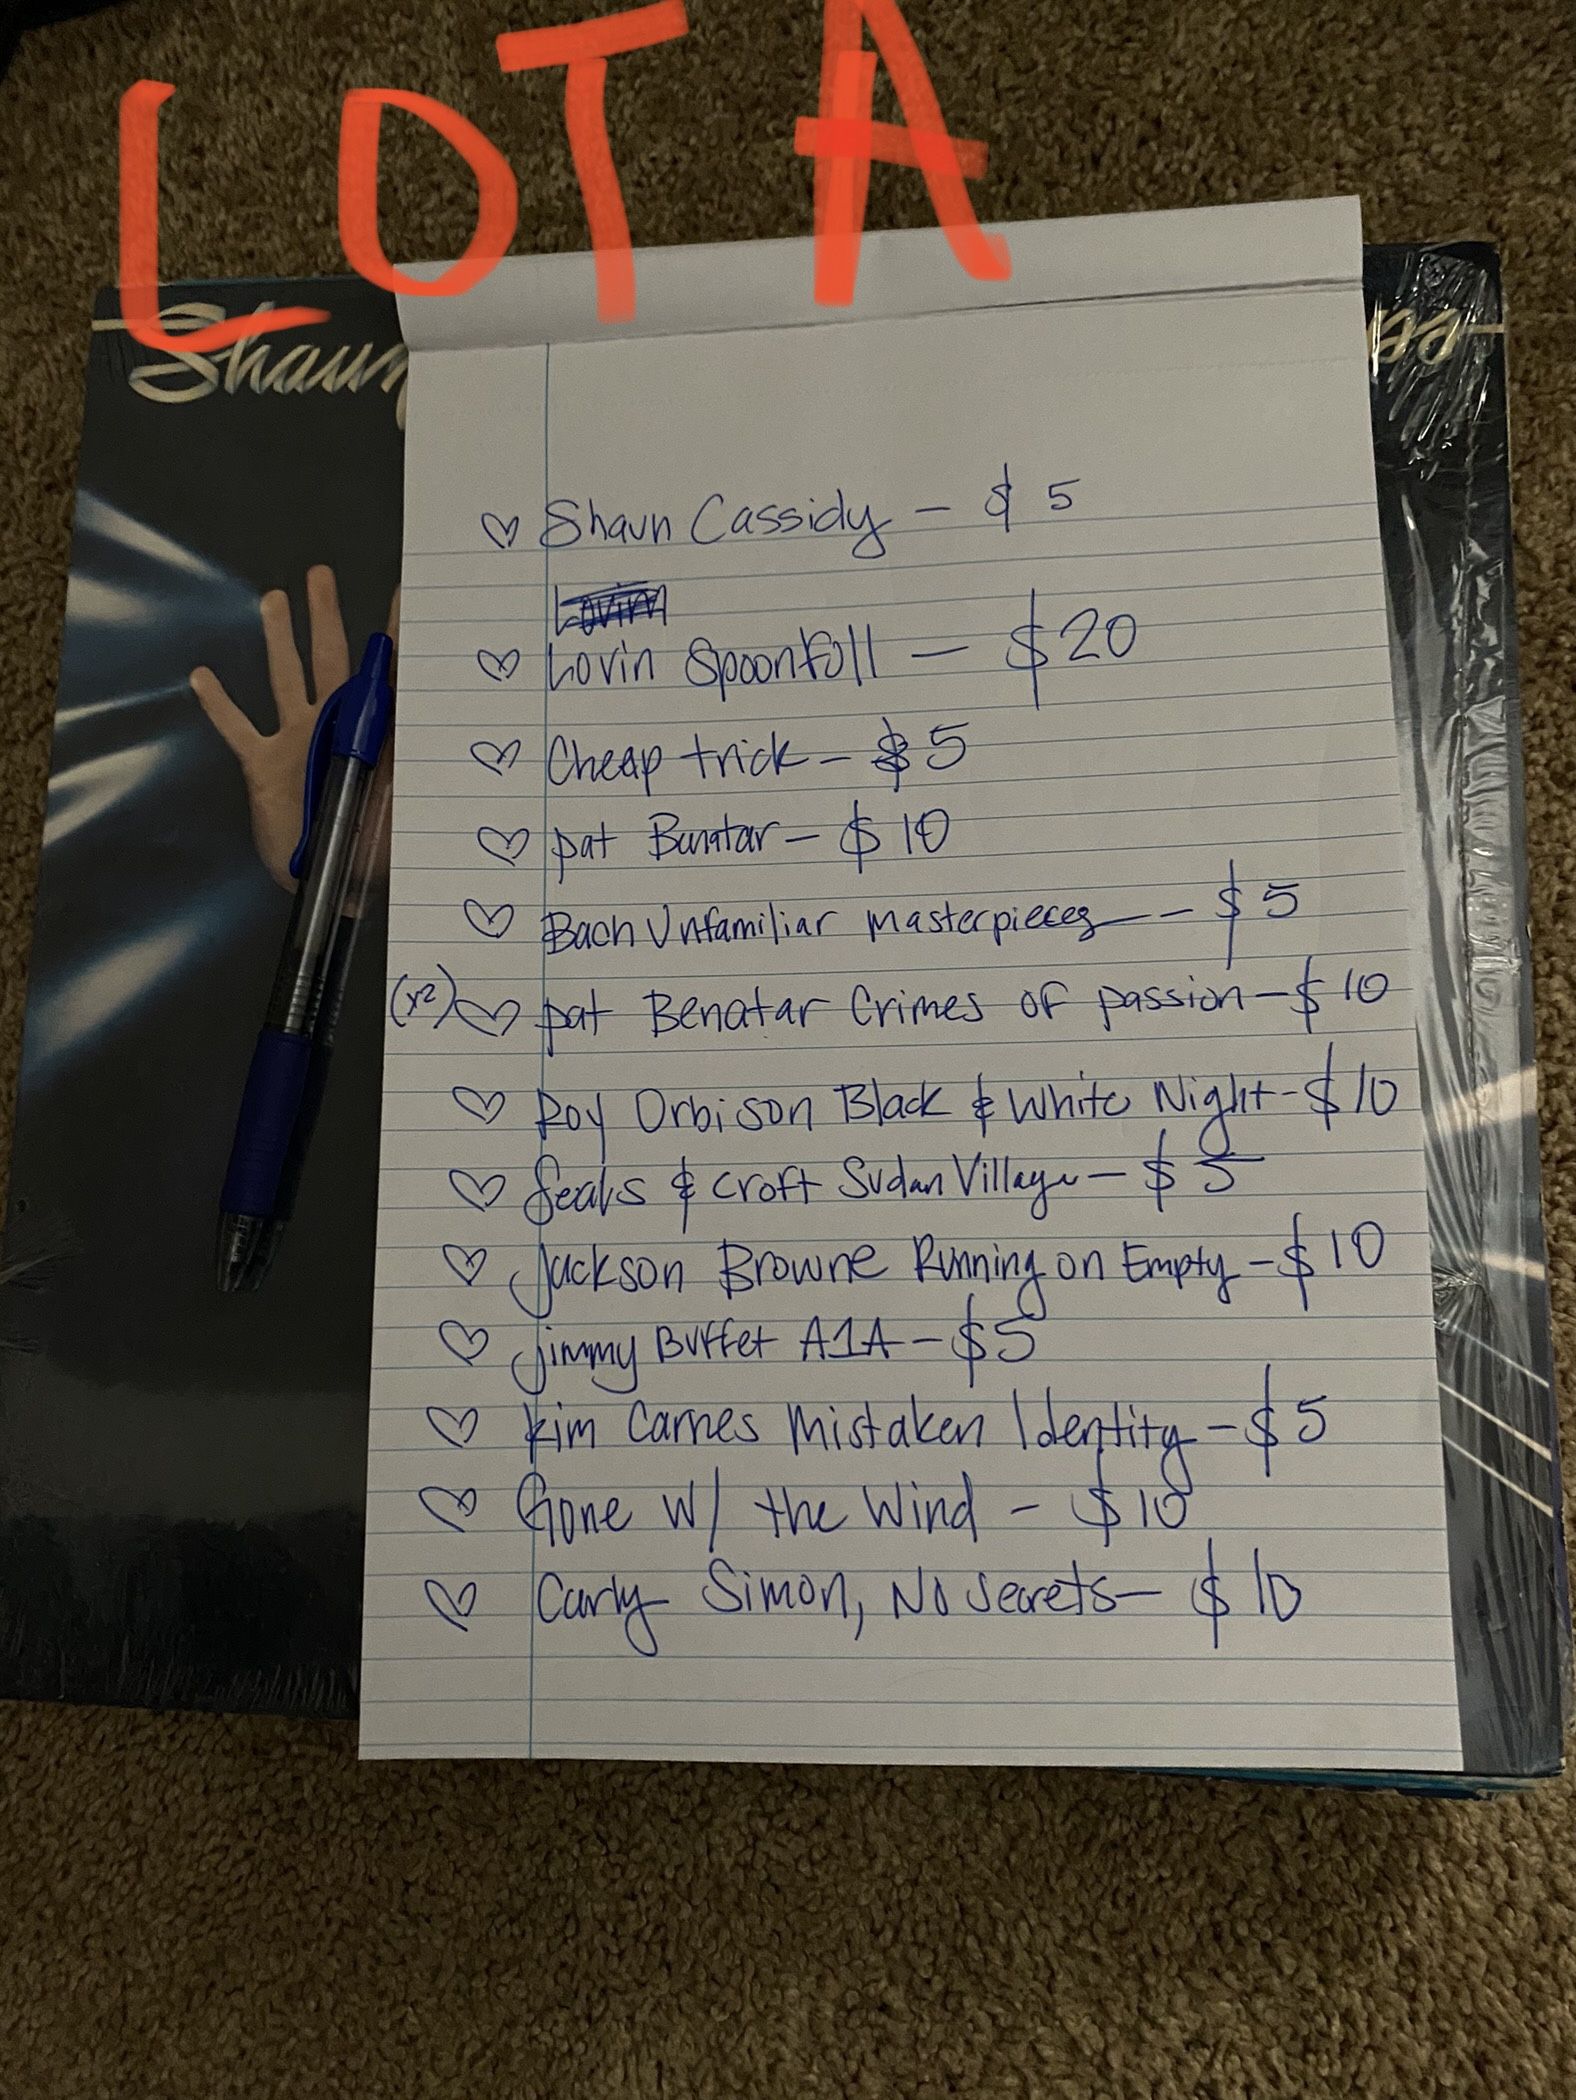 LOT A
Shaun
♡ Shaun Cassidy - $5
Lovim
♡ Lovin Spoonfoll - $20
♡ Cheap trick - $5
♡ pat Banatar - $10
♡ Bach Unfamiliar Masterpieces -- $5
(x2) ♡ pat Benatar Crimes of passion - $10
♡ Roy Orbison Black & White Night - $10
♡ Seals & Croft Sudan Village - $5
♡ Jackson Browne Running on Empty - $10
♡ jimmy Buffet A1A - $5
♡ kim Carnes Mistaken Identity - $5
♡ Gone W/ the Wind - $10
♡ Carly Simon, No Secrets - $10